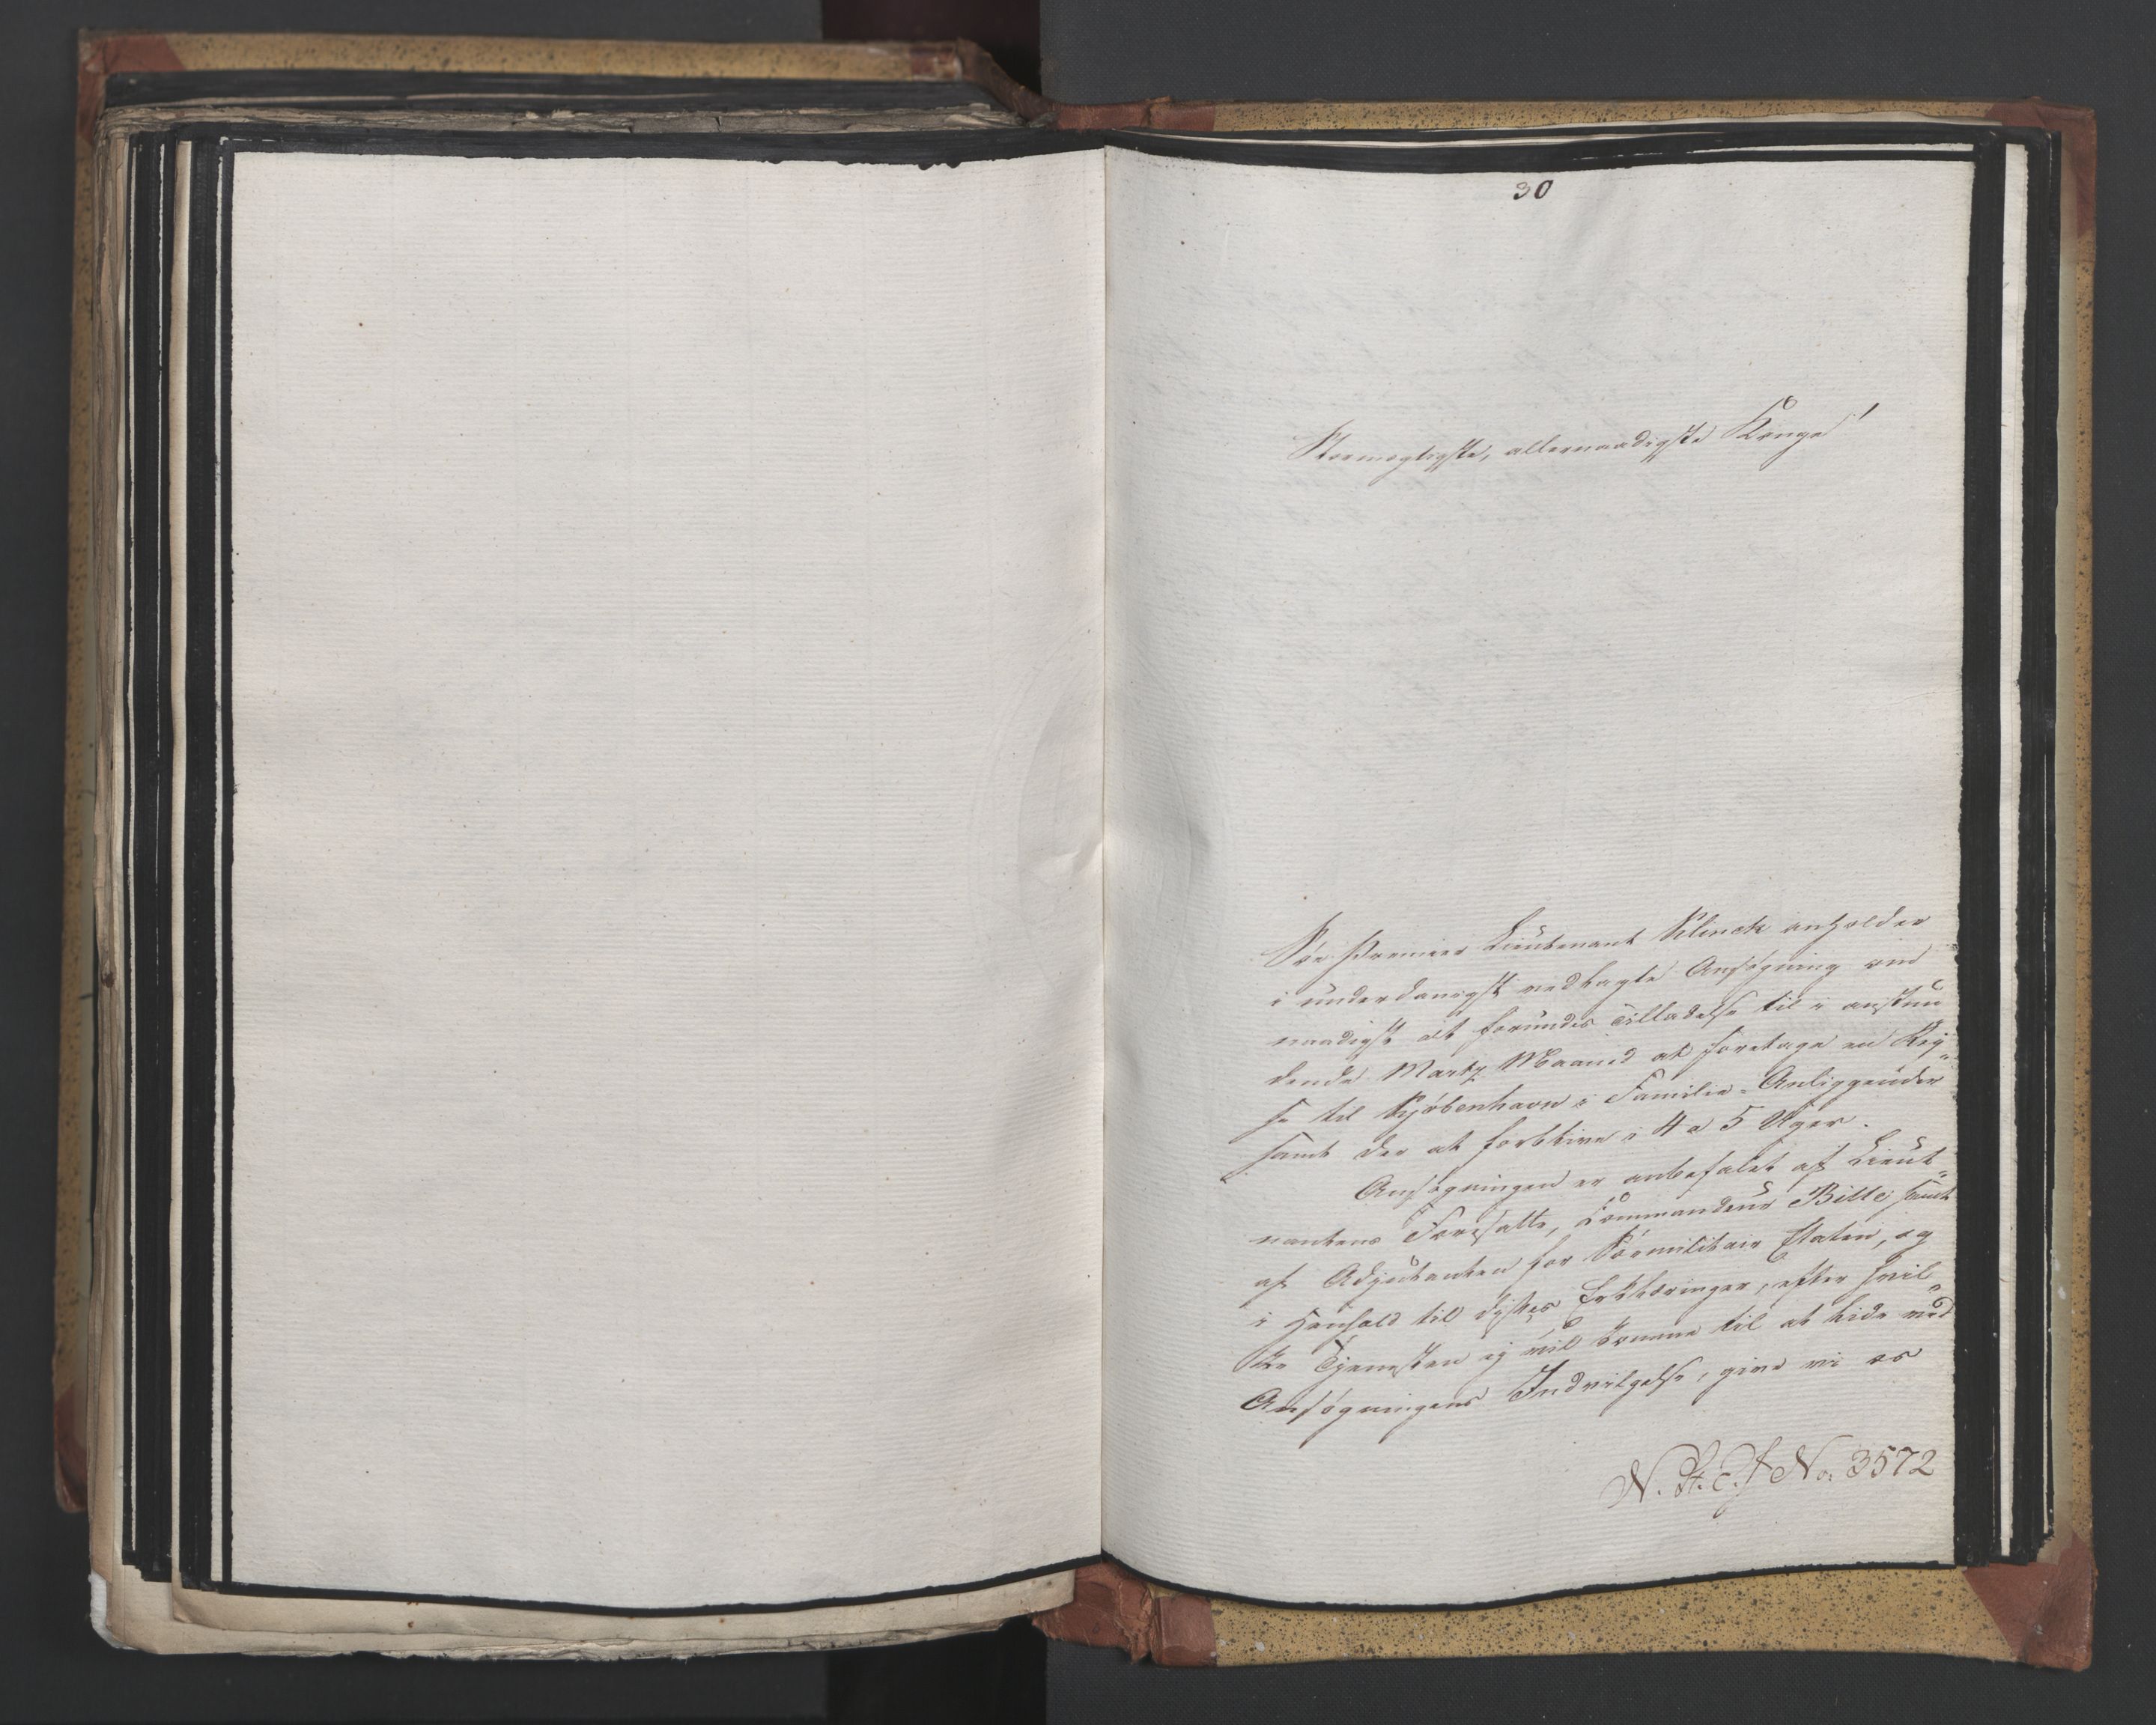 30
Stormægtigste, allernaadigste Konge!
Söe Premier Lieutenant Klinck anholder
i underdanigst vedlagte Ansögning om
naadigst at forundes Tilladelse til i anstun
dende Martz Maaned at foretage en Rej-
se til Kjöbenhavn i Familie-Anliggender
samt der at forblive i 4 a 5 Uger.
Ansögningen er anbefalet af Lieut-
nantens Foresatte, Commandeur Bille samt
af Adjutanten for Söemilitair Etaten, og
i Henhold til disses Erklæringer, efter hvil-
ke Tjenesten ej vil komme til at lide ved
Ansögningens Indvilgelse, give vi os
No. 3572